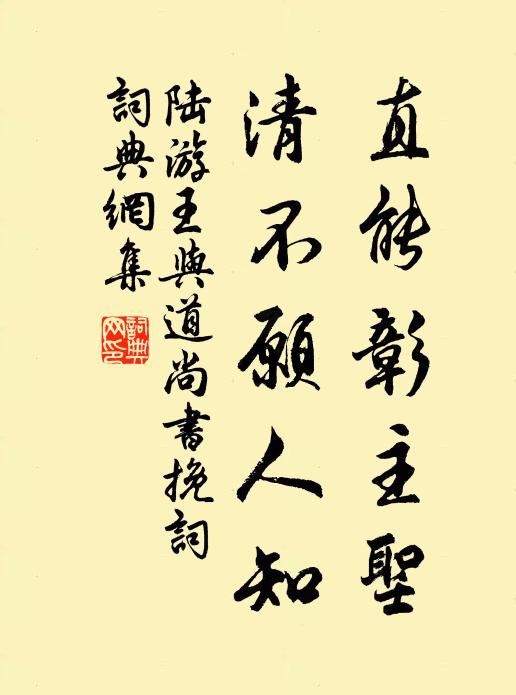 直能彰主聖
清不願人知
陸游王與道尚書挽詞
詞典網集
詞典網印